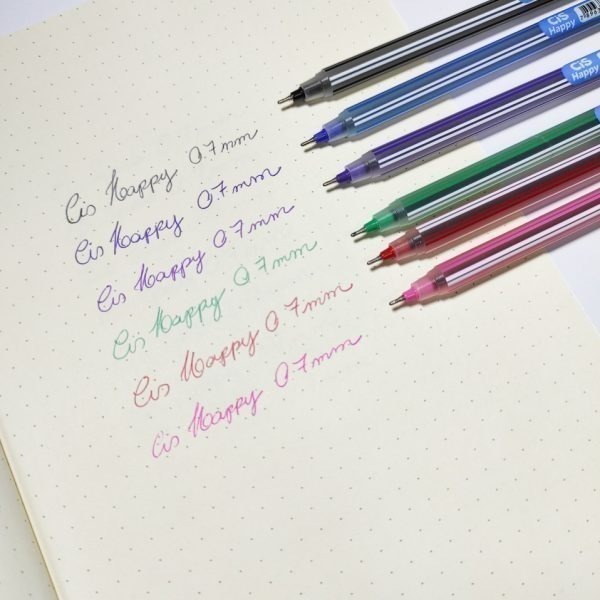 Cis Happy 0.7mm
Cis Happy 0.7mm
Cis Happy 0.7mm
Cis Happy 0.7mm
Cis Happy 0.7mm
Cis Happy 0.7mm
Cis
Happy
Cis
Happy